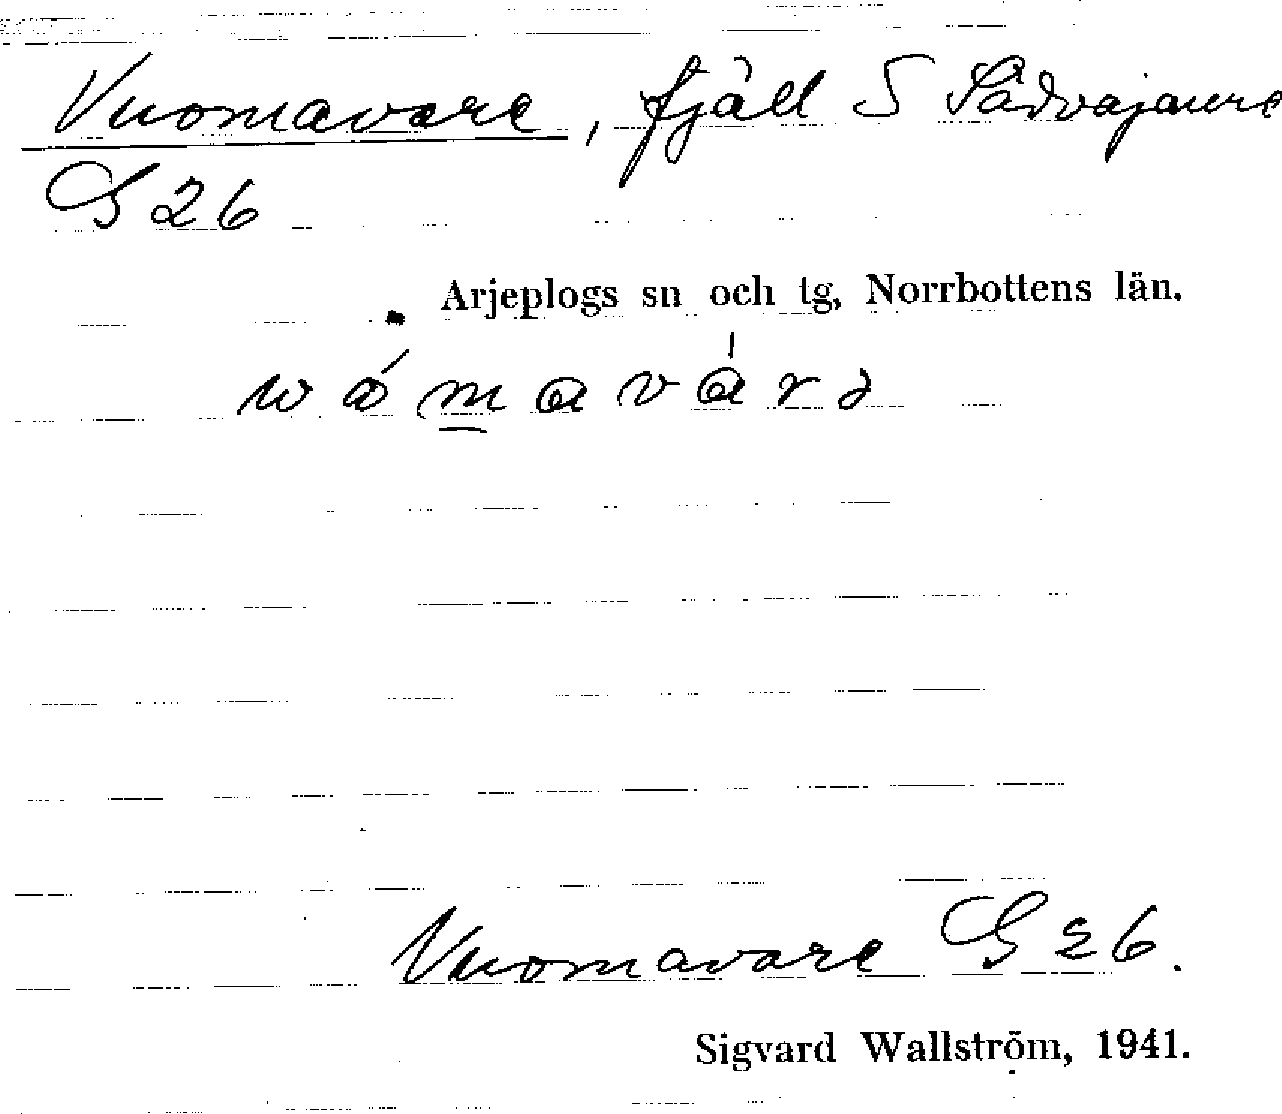 Vuomavare, fjäll S Sädvajaure
G 26
Arjeplogs sn och tg, Norrbottens län.
Vuomavare G 26.
Sigvard Wallström, 1941.